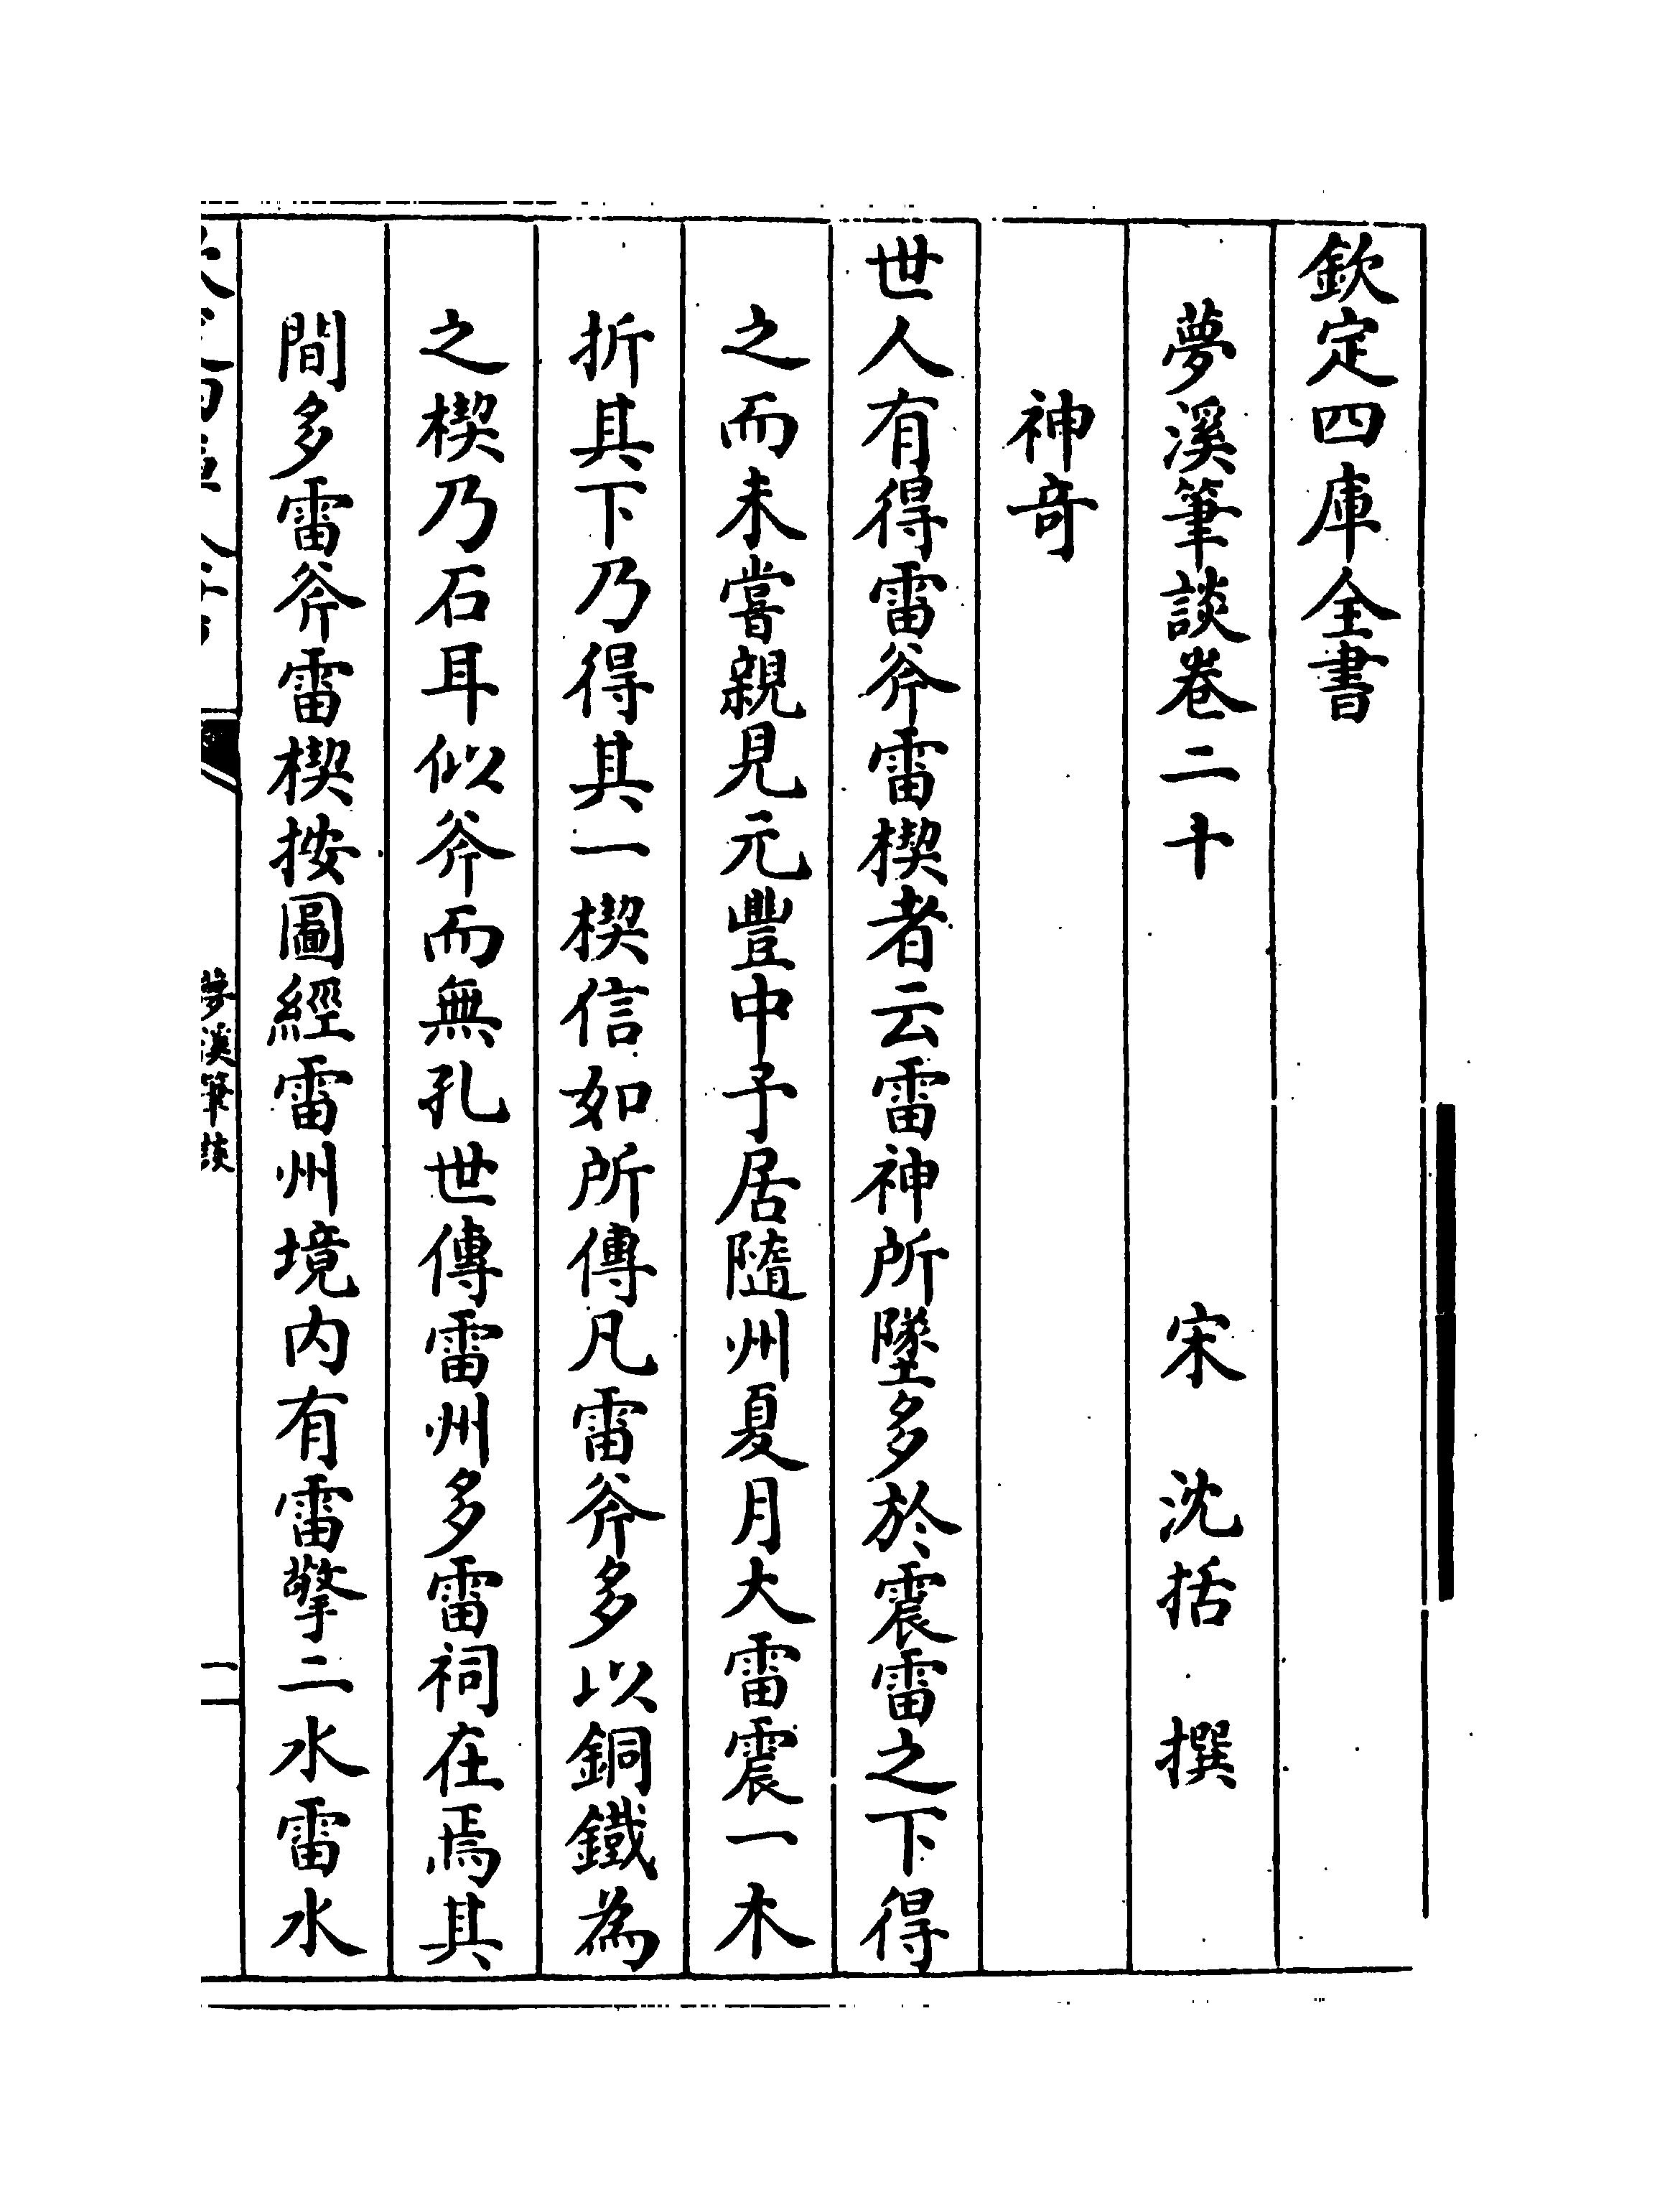 欽定四庫全書
夢溪筆談卷二十
宋 沈括 撰
神奇
世人有得雷斧雷楔者云雷神所墜多於震雷之下得
之而未嘗親見元豐中予居隨州夏月大雷震一木
折其下乃得其一楔信如所傳凡雷斧多以銅鐵為
之楔乃石耳似斧而無孔世傳雷州多雷祠在焉其
間多雷斧雷楔按圖經雷州境内有雷擎二水雷水
夢溪筆談
一